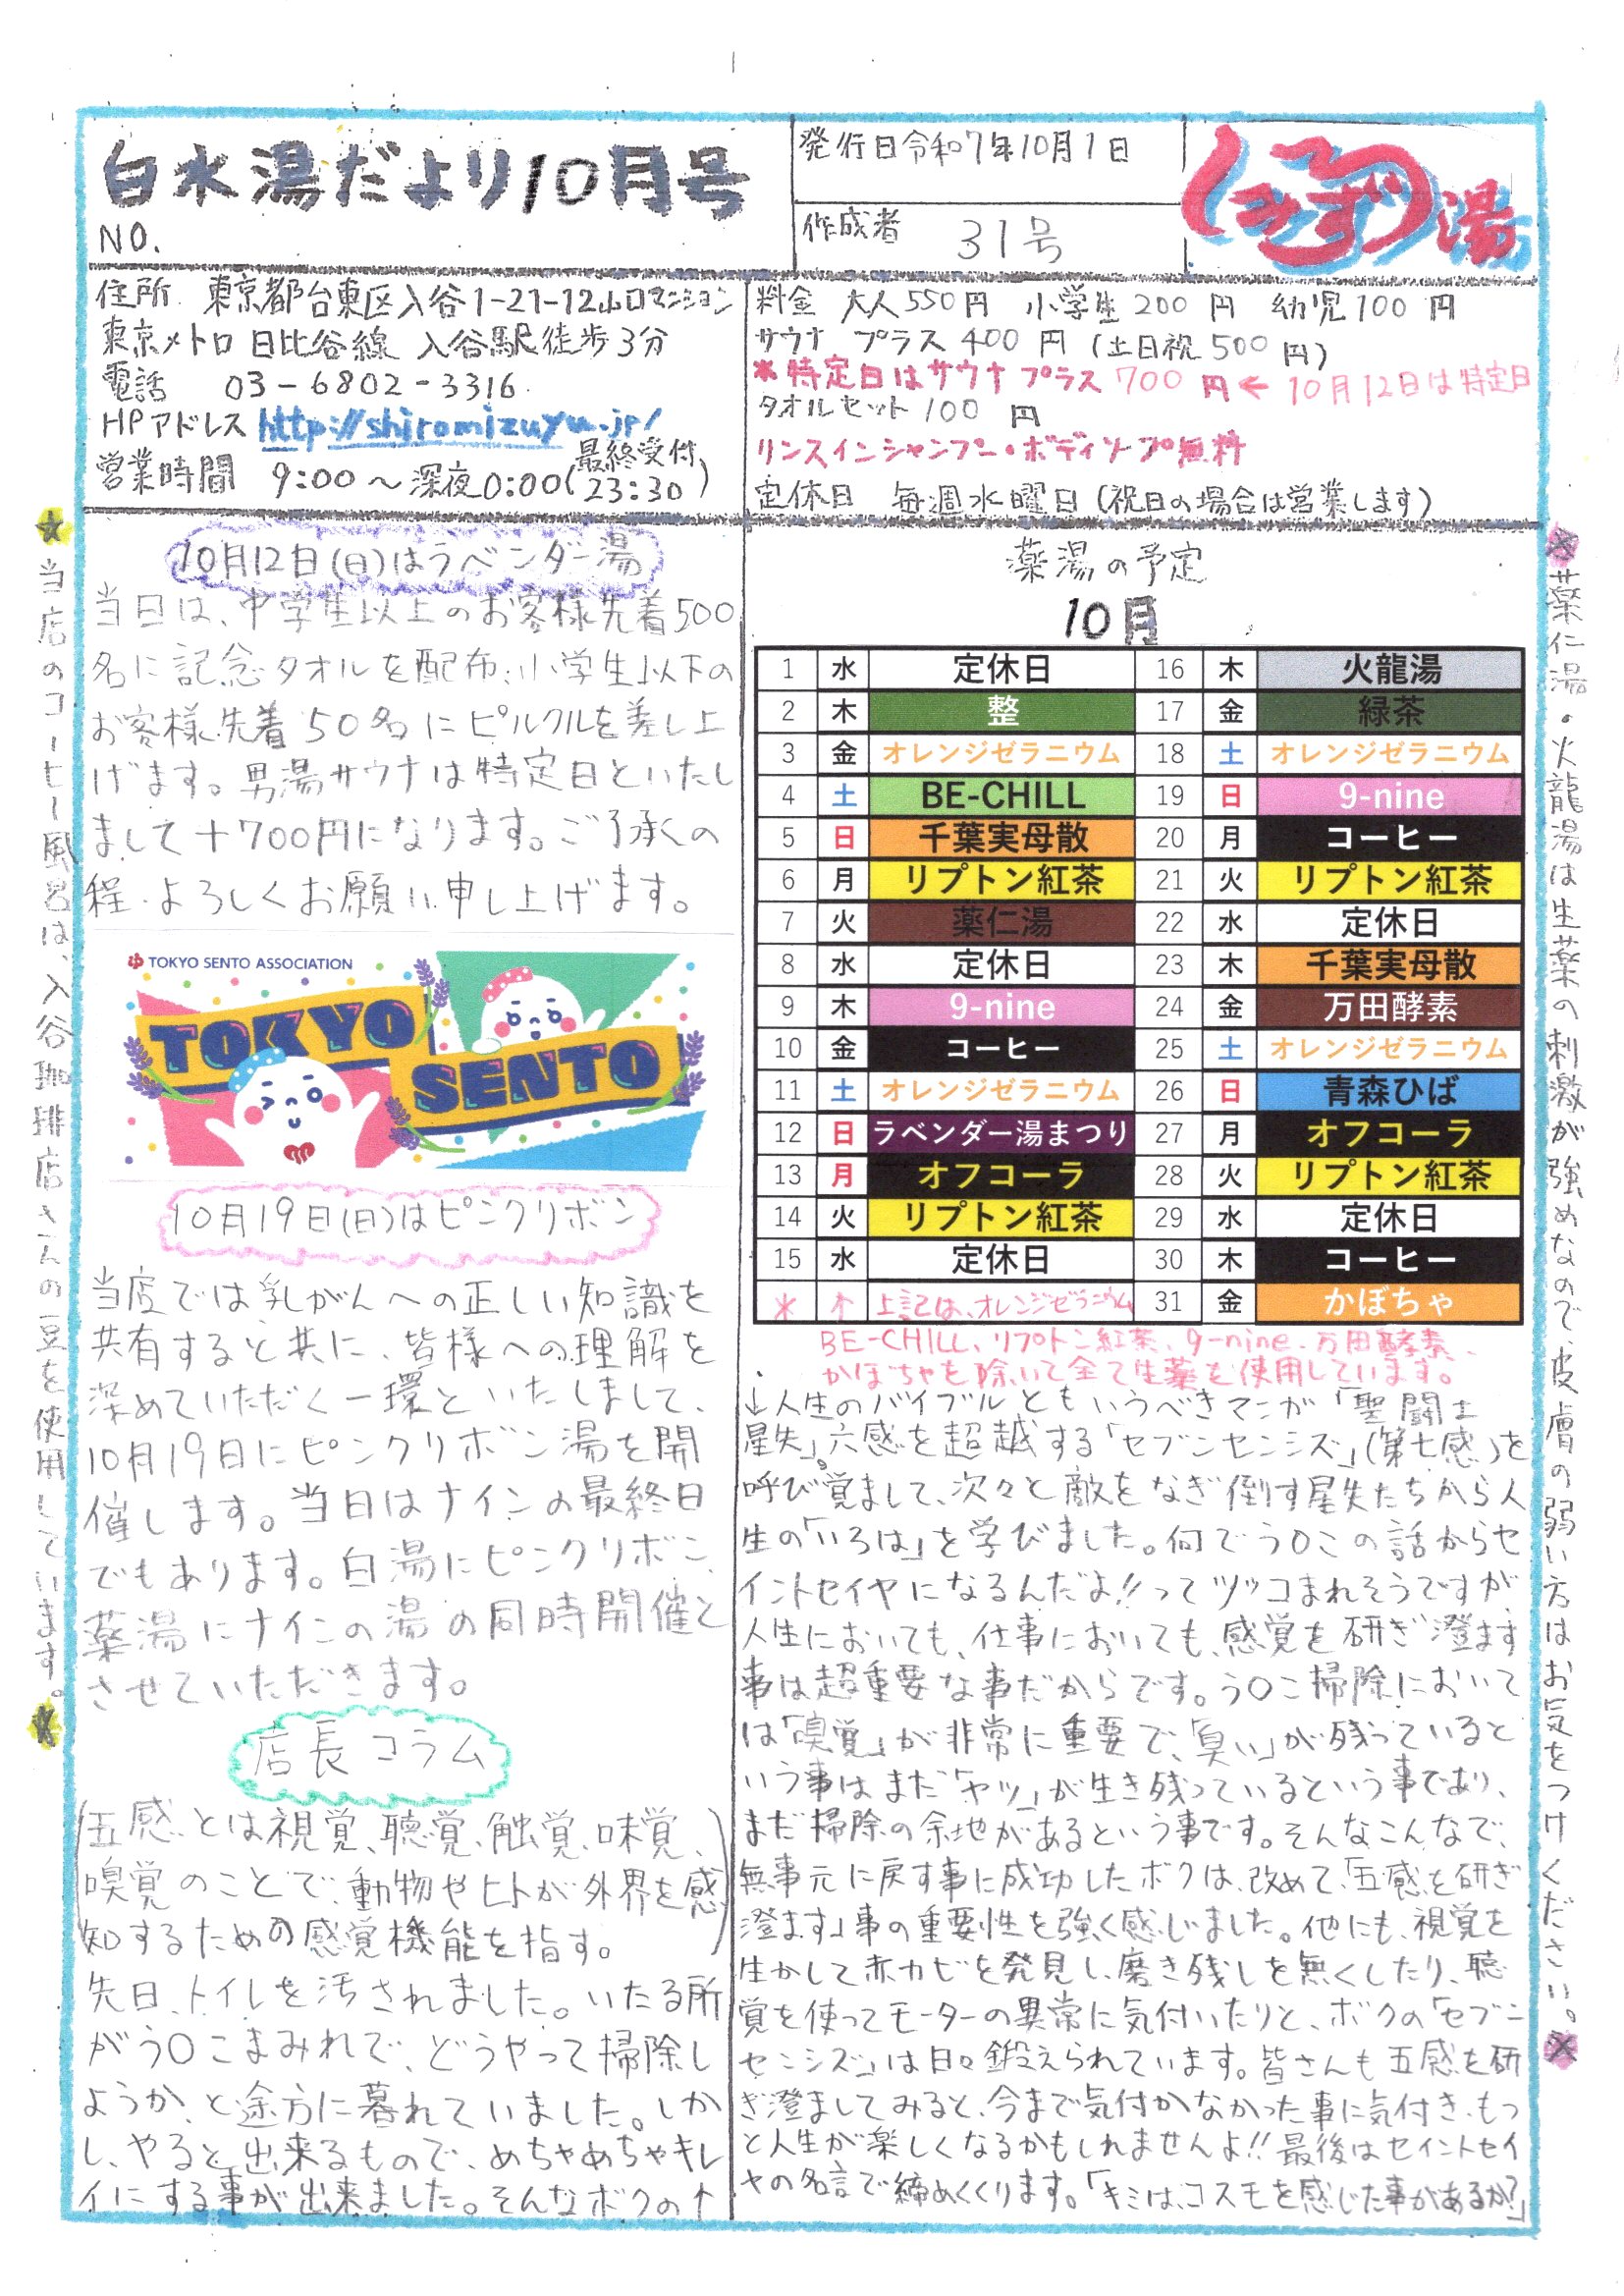 白水湯だより10月号
NO.
発行日令和7年10月1日
作成者 31号
しろみず湯
住所 東京都台東区入谷1-21-12山口マンション
東京メトロ 日比谷線 入谷駅徒歩3分
電話 03-6802-3316
HPアドレス http://shiromizuyu.jp/
営業時間 9:00～深夜0:00(最終受付23:30)
料金 大人550円 小学生200円 幼児100円
サウナ プラス400円(土日祝500円)
*特定日はサウナプラス700円←10月12日は特定日
タオルセット100円
リンスインシャンプー・ボディソープ無料
定休日 毎週水曜日(祝日の場合は営業します)
★当店のコーヒー風呂は、入谷珈琲店さんの豆を使用しています。★
10月12日(日)はラベンダー湯
当日は、中学生以上のお客様先着500
名に記念タオルを配布、小学生以下の
お客様先着50名にピルクルを差し上
げます。男湯サウナは特定日といたし
まして+700円になります。ご了承の
程、よろしくお願い申し上げます。
TOKYO SENTO ASSOCIATION
TOKYO
SENTO
10月19日(日)はピンクリボン
当店では乳がんへの正しい知識を
共有すると共に、皆様への理解を
深めていただく一環といたしまして、
10月19日にピンクリボン湯を開
催します。当日はナインの最終日
でもあります。白湯にピンクリボン、
薬湯にナインの湯の同時開催と
させていただきます。
店長コラム
(五感とは視覚、聴覚、触覚、味覚、
嗅覚のことで、動物やヒトが外界を感
知するための感覚機能を指す。)
先日、トイレを汚されました。いたる所
がう〇こまみれで、どうやって掃除し
ようか、と途方に暮れていました。しか
し、やると出来るもので、めちゃめちゃキレ
イにする事が出来ました。そんなボクの↑
薬湯の予定
10月
1 水 定休日 16 木 火龍湯
2 木 整 17 金 緑茶
3 金 オレンジゼラニウム 18 土 オレンジゼラニウム
4 土 BE-CHILL 19 日 9-nine
5 日 千葉実母散 20 月 コーヒー
6 月 リプトン紅茶 21 火 リプトン紅茶
7 火 薬仁湯 22 水 定休日
8 水 定休日 23 木 千葉実母散
9 木 9-nine 24 金 万田酵素
10 金 コーヒー 25 土 オレンジゼラニウム
11 土 オレンジゼラニウム 26 日 青森ひば
12 日 ラベンダー湯まつり 27 月 オフコーラ
13 月 オフコーラ 28 火 リプトン紅茶
14 火 リプトン紅茶 29 水 定休日
15 水 定休日 30 木 コーヒー
* ↑ 上記は、オレンジゼラニウム 31 金 かぼちゃ
BE-CHILL、リプトン紅茶、9-nine、万田酵素、
かぼちゃを除いて全て生薬を使用しています。
↓人生のバイブルともいうべきマンガ「聖闘士
星矢」。六感を超越する「セブンセンシズ」(第七感)を
呼び覚まして、次々と敵をなぎ倒す星矢たちから人
生の「いろは」を学びました。何でう〇この話からセ
イントセイヤになるんだよ!!ってツッコまれそうですが、
人生においても、仕事においても、感覚を研ぎ澄ます
事は超重要な事だからです。う〇こ掃除において
は「嗅覚」が非常に重要で、「臭い」が残っていると
いう事はまだ「ヤツ」が生き残っているという事であり、
まだ掃除の余地があるという事です。そんなこんなで、
無事元に戻す事に成功したボクは、改めて、「五感を研ぎ
澄ます」事の重要性を強く感じました。他にも、視覚を
生かして赤カビを発見し、磨き残しを無くしたり、聴
覚を使ってモーターの異常に気付いたりと、ボクの「セブン
センシズ」は日々鍛えられています。皆さんも五感を研
ぎ澄ましてみると、今まで気付かなかった事に気付き、もっ
と人生が楽しくなるかもしれませんよ!!最後はセイントセイ
ヤの名言で締めくくります。「キミは、コスモを感じた事があるか?」
★薬仁湯・火龍湯は生薬の刺激が強めなので、皮膚の弱い方はお気をつけください。★